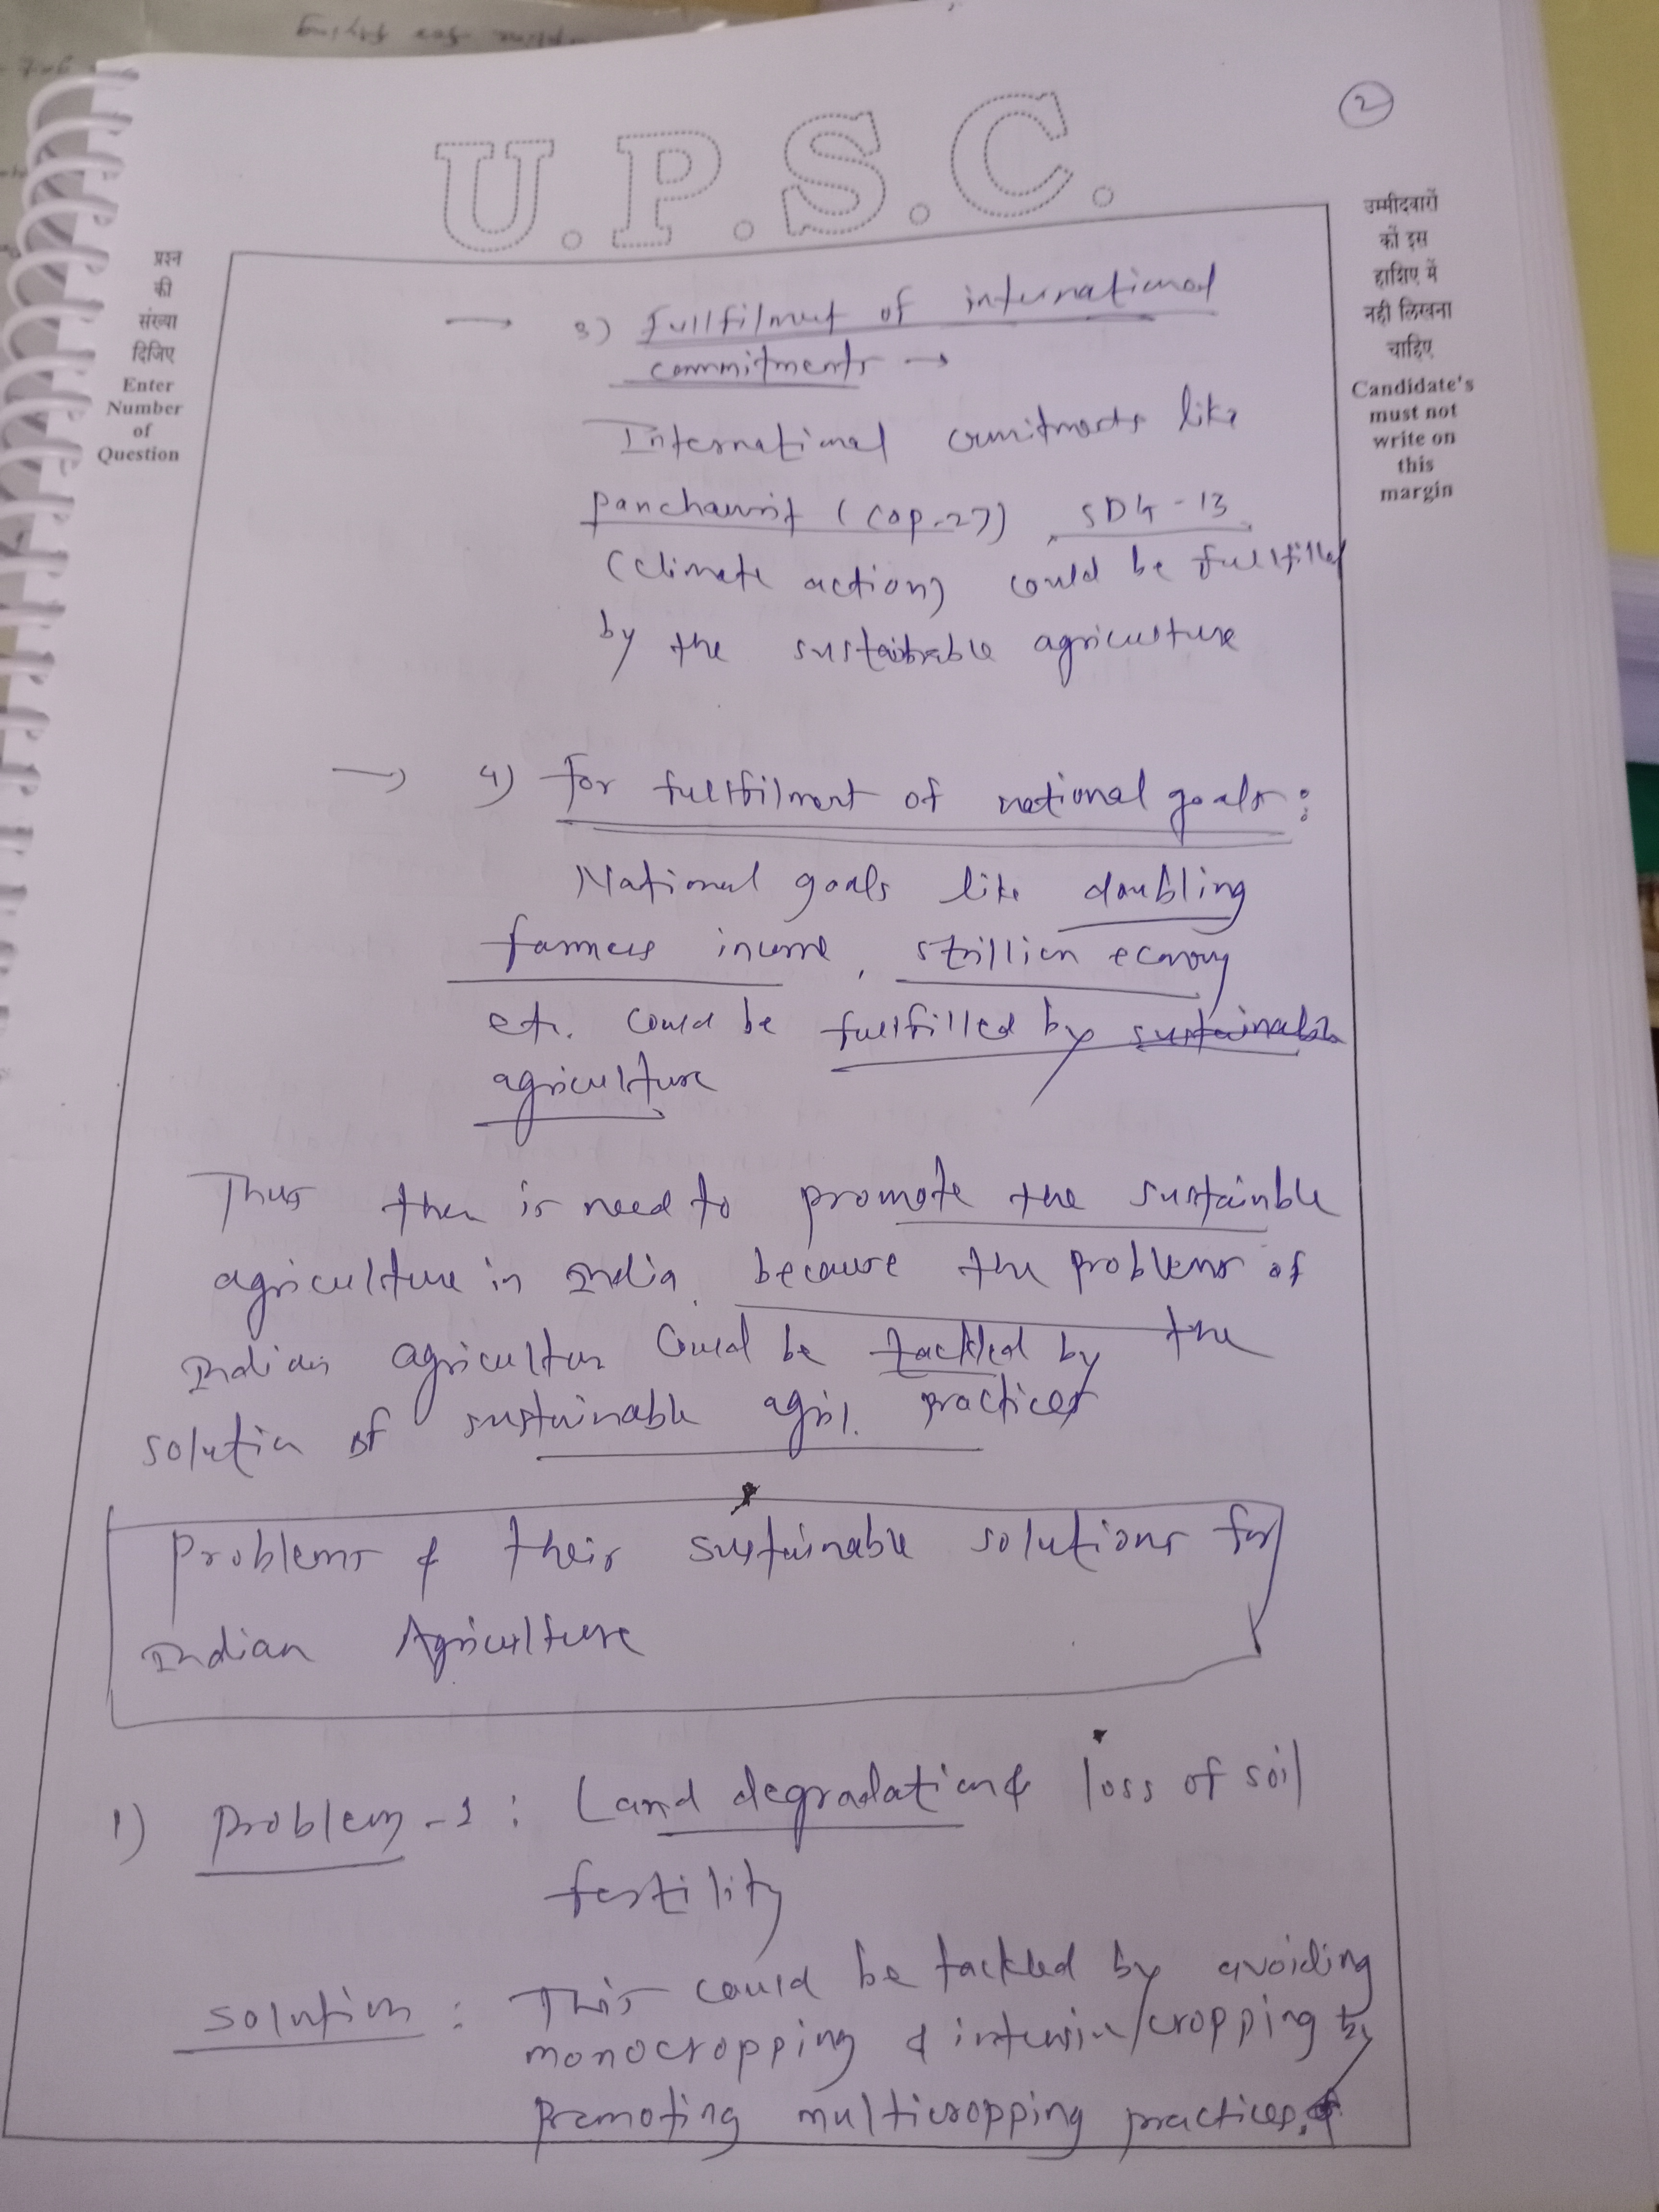 2
U.P.S.C.
प्रश्न
की
संख्या
दिजिए
Enter
Number
of
Question
उम्मीदवारों
कों इस
हाशिए में
नही लिखना
चाहिए
Candidate's
must not
write on
this
margin
→ 3) Fullfilment of international
commitments →
International commitments like
panchamrit (COP-27) SDG-13
(climate action) could be fullfilled
by the sustainable agriculture
→ 4) for fullfilment of national goals:
National goals like doubling
farmers income, 5trillion economy
etc. could be fullfilled by sustainable
agriculture
Thus there is need to promote the sustainble
agriculture in India because the problems of
Indian agriculture could be tackled by the
solution of sustainable agri. practices
problems & their sustainable solutions for
Indian Agriculture
1) Problem-1: Land degradation & loss of soil
fertility
solution: This could be tackled by avoiding
monocropping & intensive cropping by
Promoting multicropping practices.